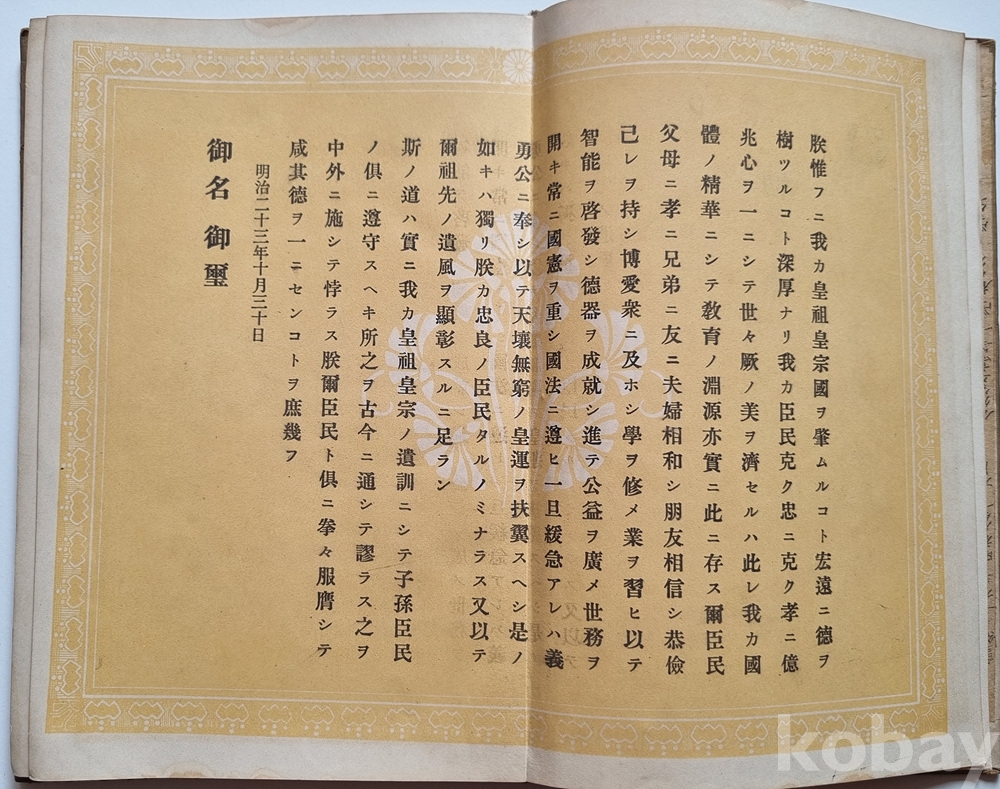 朕惟フニ我カ皇祖皇宗國ヲ肇ムルコト宏遠ニ德ヲ
樹ツルコト深厚ナリ我カ臣民克ク忠ニ克ク孝ニ億
兆心ヲ一ニシテ世々厥ノ美ヲ濟セルハ此レ我カ國
體ノ精華ニシテ敎育ノ淵源亦實ニ此ニ存ス爾臣民
父母ニ孝ニ兄弟ニ友ニ夫婦相和シ朋友相信シ恭儉
己レヲ持シ博愛衆ニ及ホシ學ヲ修メ業ヲ習ヒ以テ
智能ヲ啓發シ德器ヲ成就シ進テ公益ヲ廣メ世務ヲ
開キ常ニ國憲ヲ重シ國法ニ遵ヒ一旦緩急アレハ義
勇公ニ奉シ以テ天壤無窮ノ皇運ヲ扶翼スヘシ是ノ
如キハ獨リ朕カ忠良ノ臣民タルノミナラス又以テ
爾祖先ノ遺風ヲ顯彰スルニ足ラン
斯ノ道ハ實ニ我カ皇祖皇宗ノ遺訓ニシテ子孫臣民
ノ俱ニ遵守スヘキ所之ヲ古今ニ通シテ謬ラス之ヲ
中外ニ施シテ悖ラス朕爾臣民ト俱ニ拳々服膺シテ
咸其德ヲ一ニセンコトヲ庶幾フ
明治二十三年十月三十日
御名 御璽
kobay